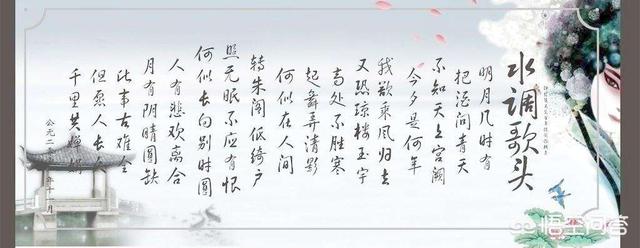 水调歌头
明月几时有
把酒问青天
不知天上宫阙
今夕是何年
我欲乘风归去
又恐琼楼玉宇
高处不胜寒
起舞弄清影
何似在人间
转朱阁低绮户
照无眠不应有恨
何似长向别时圆
人有悲欢离合
月有阴晴圆缺
此事古难全
但愿人长久
千里共婵娟
公元二
年十一月
悟空问答